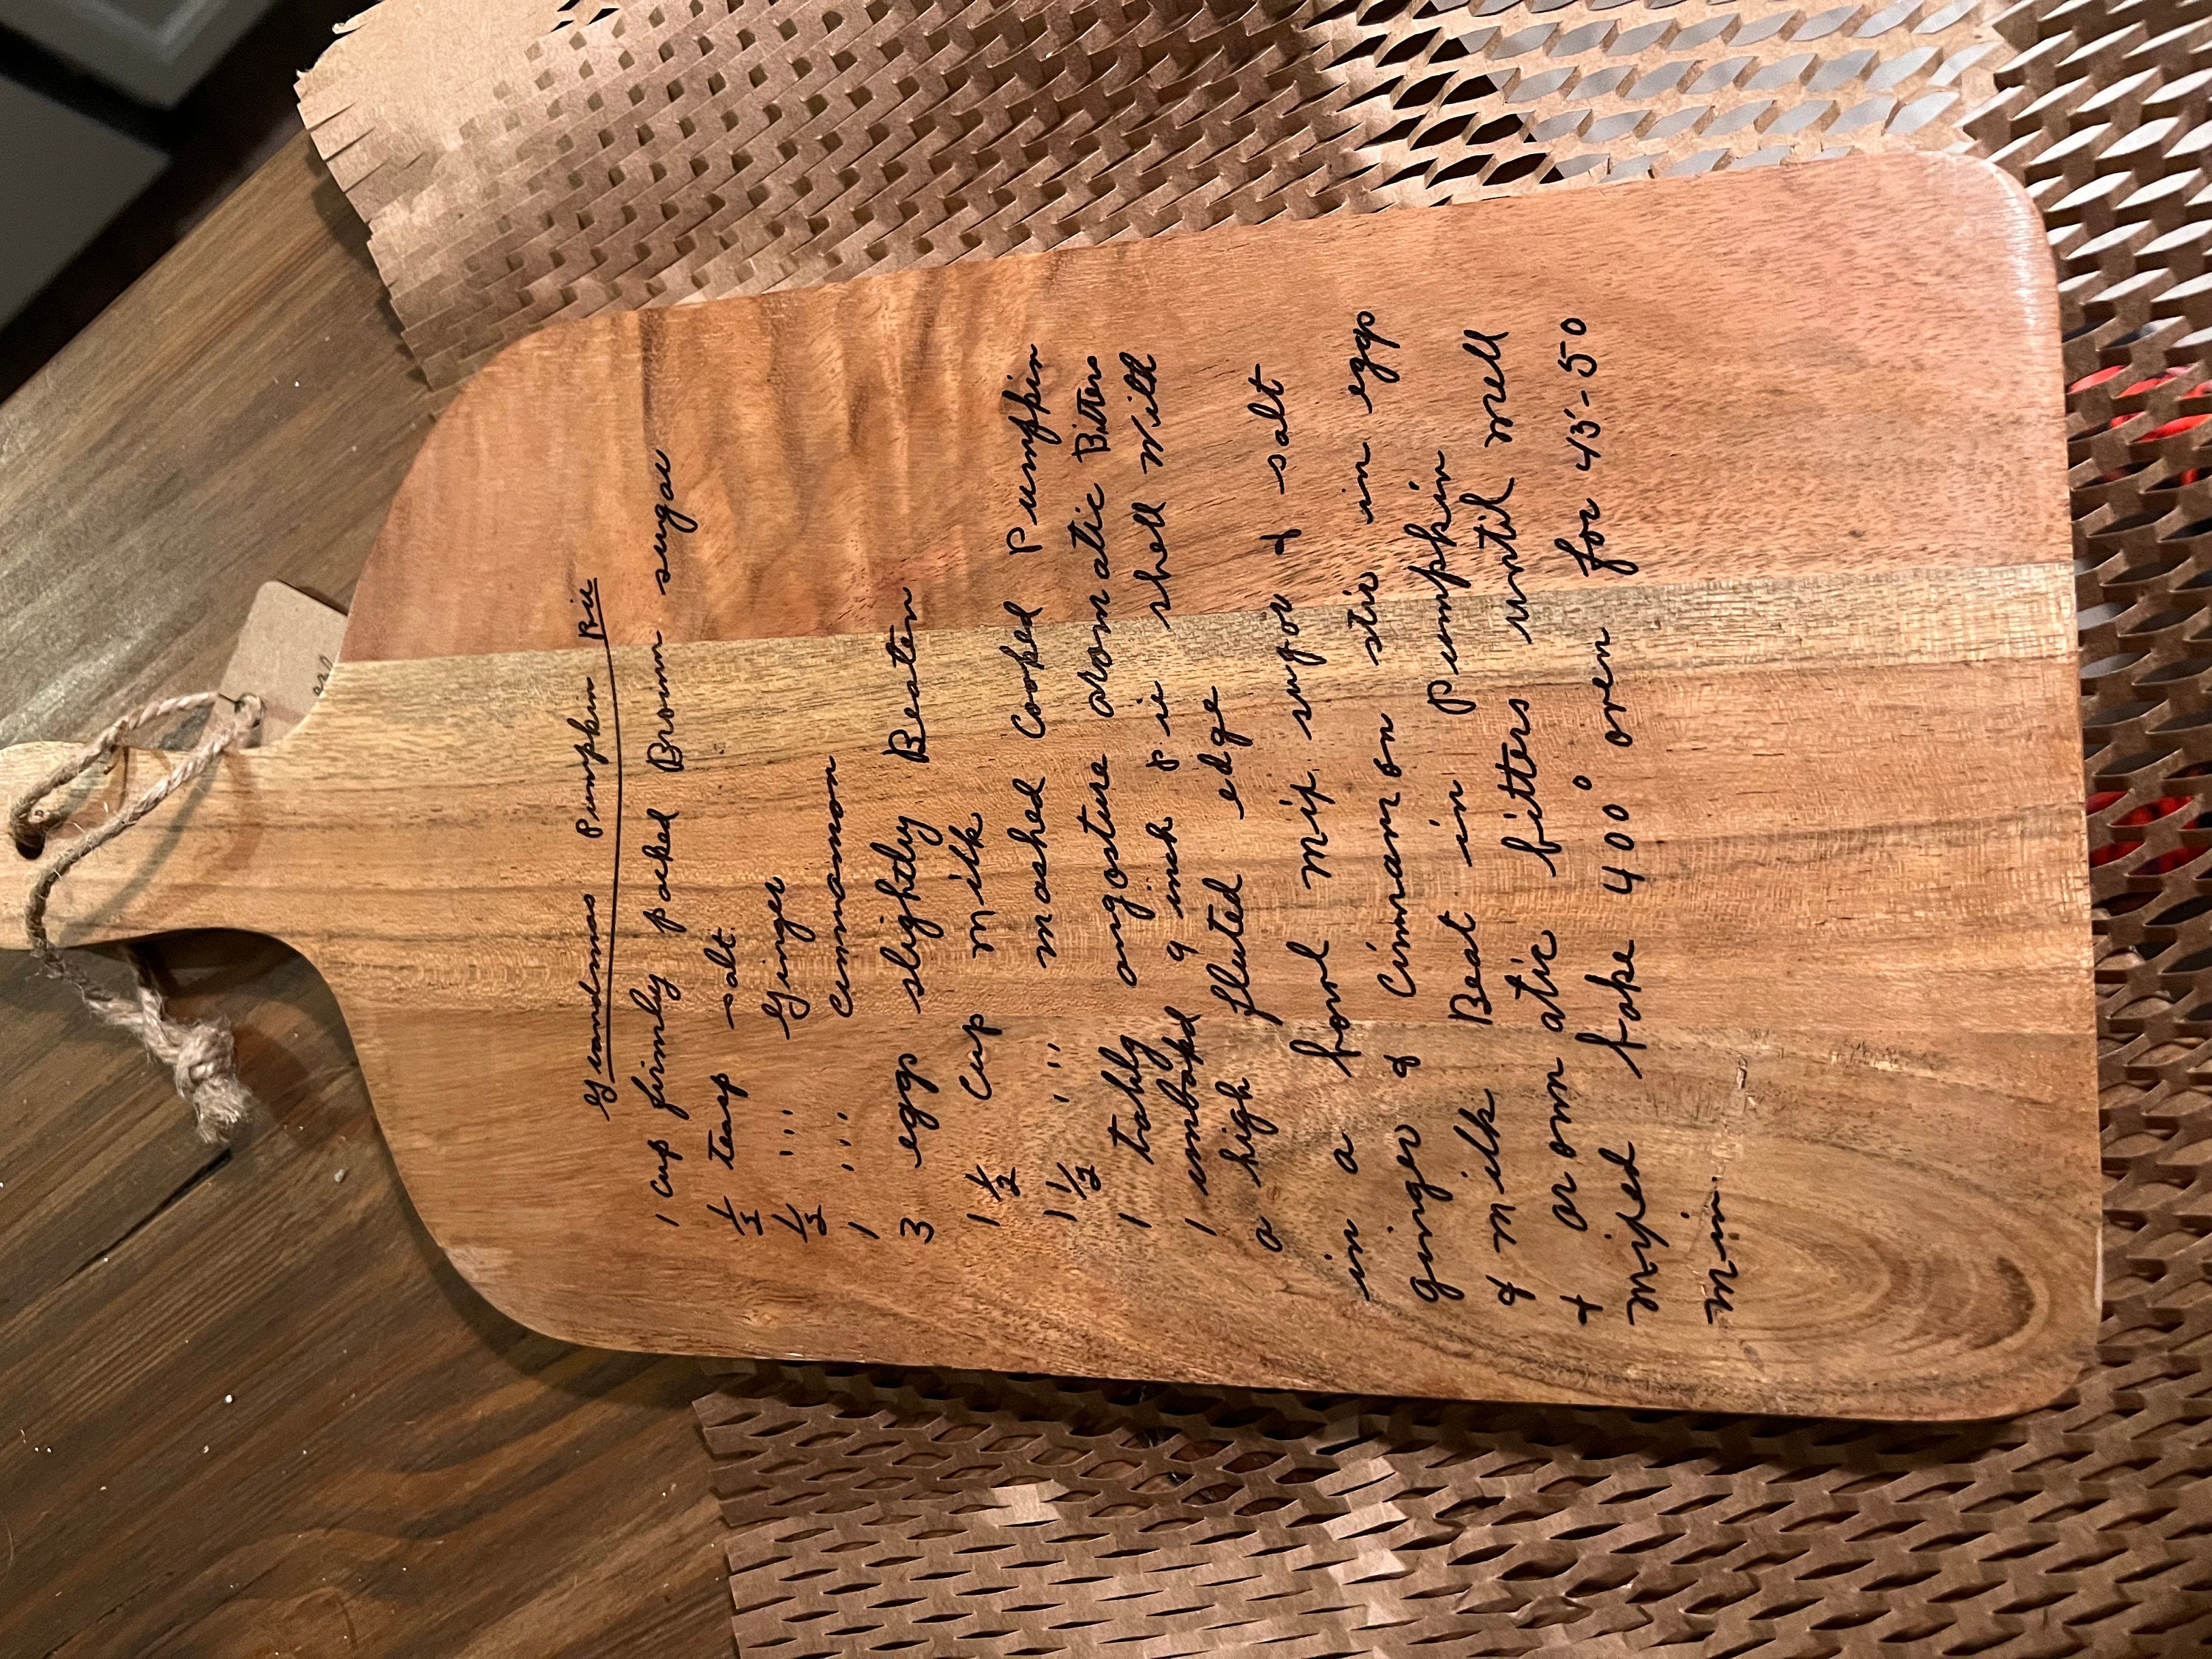 Grandmas Pumpkin Pie
1 cup firmly packed Brown sugar
1/2 teasp salt
1/2 " " Ginger
1 " " Cinnamon
3 eggs slightly Beaten
1 1/2 cup milk
1 1/2 " " mashed cooked Pumpkin
1 tabls angosture aromatic Bitters
1 unbaked 9 inch pie shell with
a high fluted edge
in a bowl mix sugar & salt
ginger & Cinnamon stir in eggs
& milk Beat in Pumpkin
+ aromatic bitters until well
mixed bake 400° oven for 45-50
min.